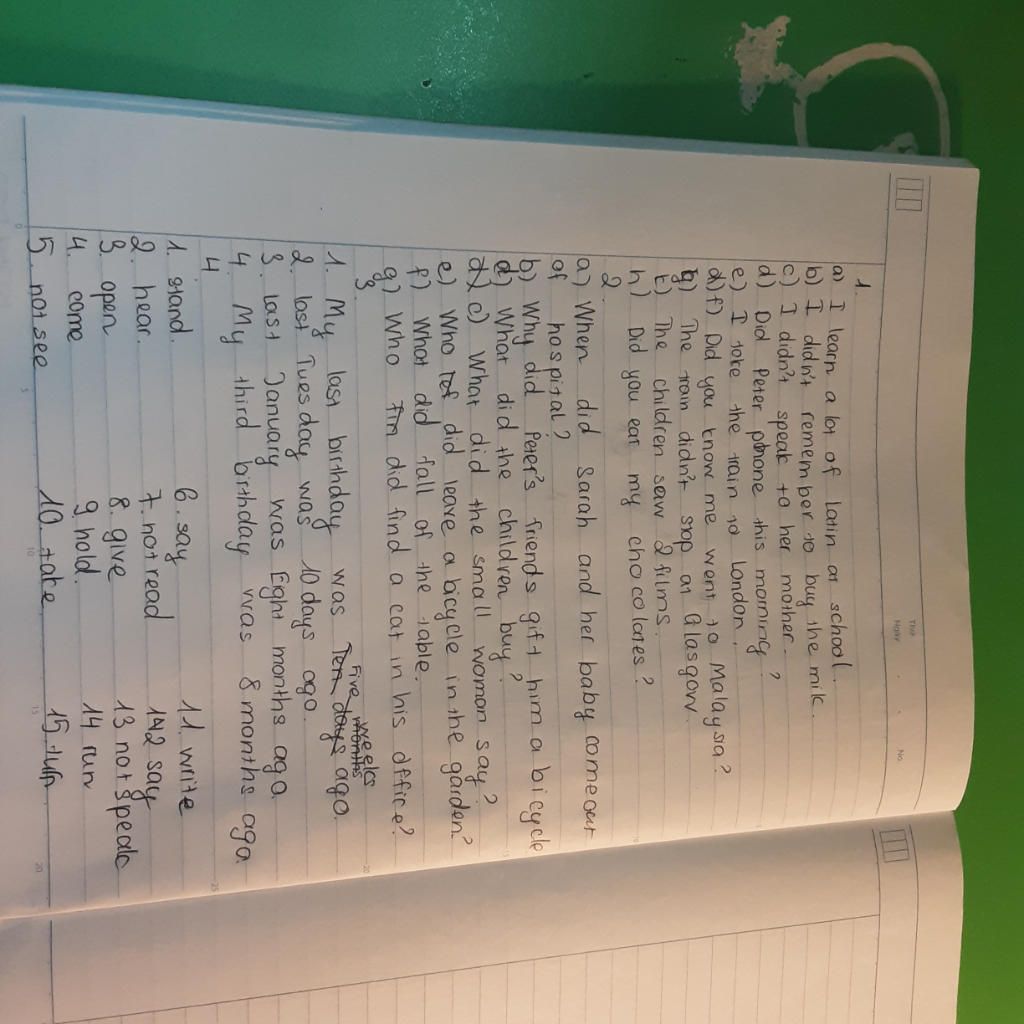 Thứ
Ngày
No.
1.
a) I learn a lot of latin at school.
b) I didn't remember to buy the milk.
c) I didn't speak to her mother.
d) Did Peter phone this morning?
e) I take the train to london.
f) Did you know me went to Malaysia?
g) The train didn't stop at Glasgow.
t) The children saw 2 films.
h) Did you eat my chocolates?
2.
a) When did Sarah and her baby come out
of hospital?
b) Why did Peter's friends gift him a bicycle
d) What did the children buy?
c) What did the small woman say?
e) Who did leave a bicycle in the garden?
f) What did fall of the table.
g) Who did find a cat in his office?
3
1. My last birthday was Five weeks ago.
2. last Tuesday was 10 days ago.
3. last January was Eight months ago.
4. My third birthday was 8 months ago.
4
1. stand. 6. say 11. write
2. hear. 7. not read 12 say
3. open 8. give 13 not speak
4. come 9. hold. 14 run
5. not see 10. take 15. turn